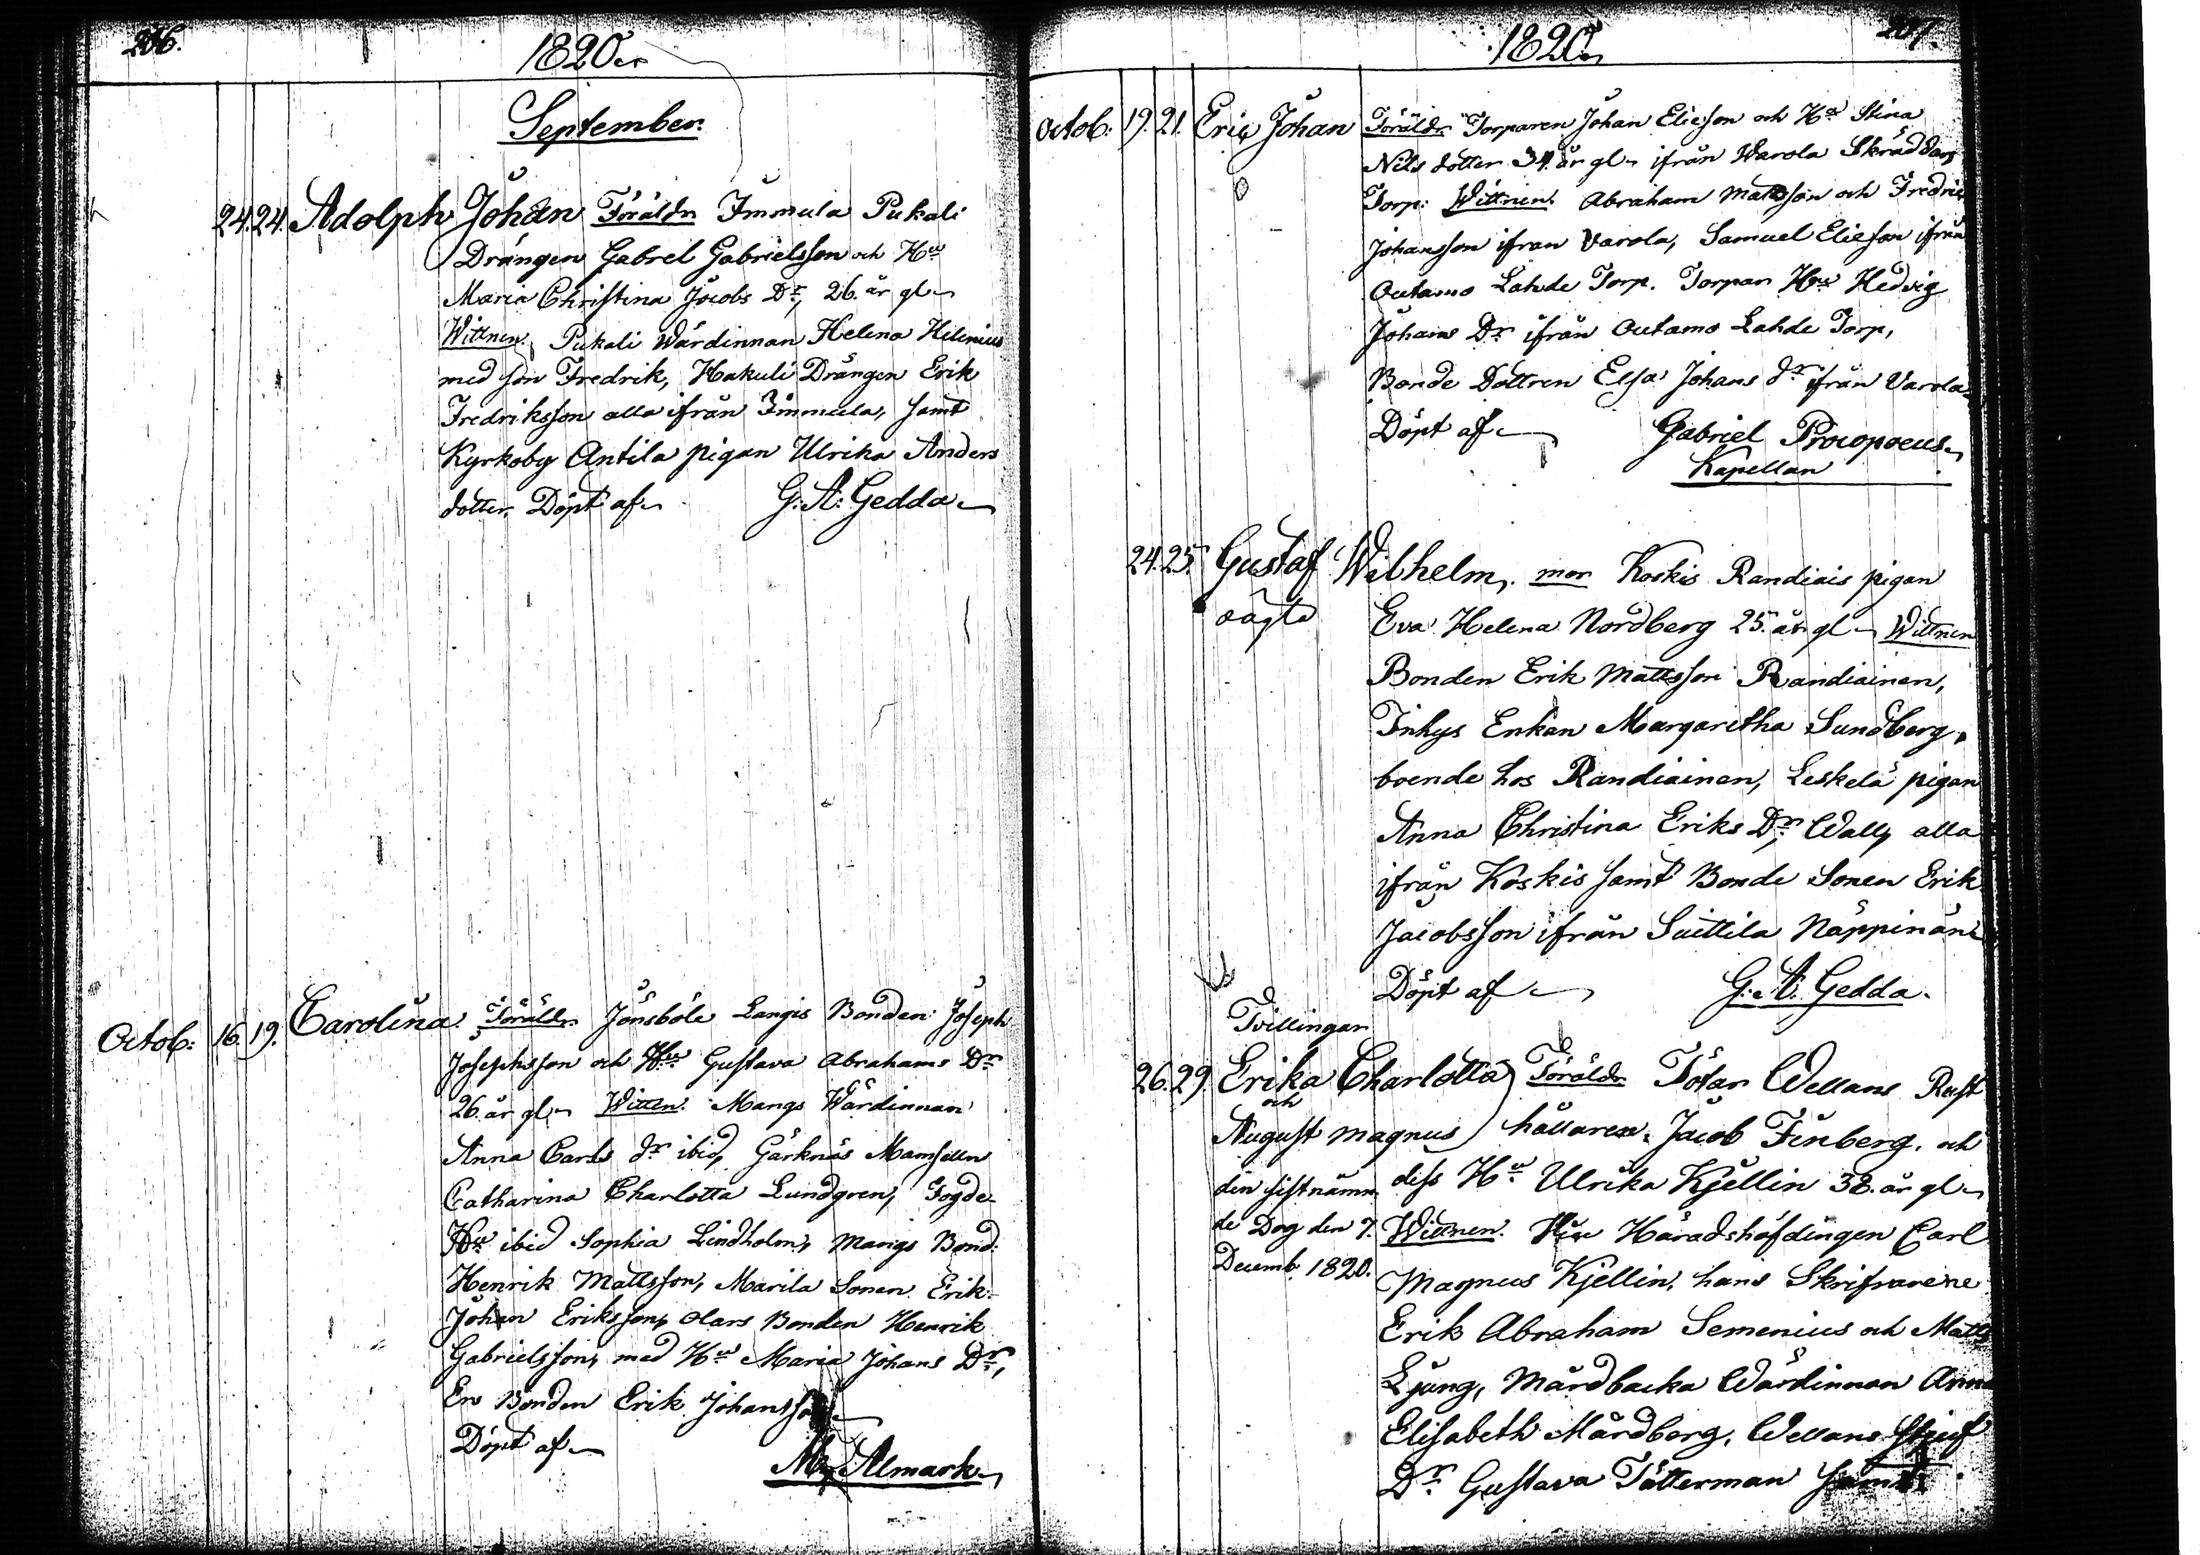 206.
1820.
September.
24. 24. Adolph Johan Föräldr Immula Pukali
Drängen Gabrel Gabrielsson och Hu
Maria Christina Jacobs Dr, 26. år gl
Wittnen. Pukali Wärdinnan Helena Hilenius
med son Fredrik, Hakuli Drängen Erik
Fredriksson alla ifrån Immula, samt
Kyrkoby Antila pigan Ulrika Anders
dotter. Döpt af G: A: Gedda
Octob: 16. 19. Carolina. Föräldr Jönsböle Langis Bonden Joseph
Josephsson och Hu Gustava Abrahams Dr
26. år gl Wittn. Mangs Wärdinnan
Anna Carls dr ibid, Gärknäs Mamsellen
Catharina Charlotta Lundgren, Fogde
Hu ibid Sophia Lindholm, Mangs Bond:
Henrik Mattsson, Marila Sonen Erik
Johan Eriksson, Olars Bonden Henrik
Gabrielsson, med Hu Maria Johans Dr,
Ers Bonden Erik Johansson
Döpt af
Almark
207.
1820.
Octob: 19. 21. Eric Johan Föräldr Torparen Johan Elieson och Hu Stina
Nils dotter 34. år gl ifrån Warola Skräddars
Torp: Wittnen. Abraham Mattsson och Fredric
Johansson ifran Varola, Samuel Elieson ifrån
Outamo Lahde Torp. Torpar Hu Hedvig
Johans Dr ifrån Outamo Lahde Torp,
Bonde Dottren Elsa Johans dr ifrån Varola
Döpt af Gabriel Procopoeus
Kapellan
24. 25. Gustaf Wilhelm, mor Koskis Randiais pigan
oägta Eva Helena Nordberg 25. år gl Wittnen
Bonden Erik Mattsson Randiainen,
Inhys Enkan Margaretha Sundberg,
boende hos Randiainen, Leskelä pigan
Anna Christina Eriks Dr, Wall, alla
ifrån Koskis samt Bonde Sonen Erik
Jacobsson ifrån Suittila Näppinän
Döpt af G: A. Gedda.
Tvillingar
26. 29. Erika Charlotta Föräldr Tötar Wellans Rust
och
August Magnus hållaren Jacob Finberg, och
den sistnämn dess Hu Ulrika Kjellin 38. år gl
de Dog den 7. Wittnen. Häradshöfdingen Carl
Decemb. 1820. Magnus Kjellin, hans Skrifvarene
Erik Abraham Semenius och Matts
Ljung, Mårdbacka Wärdinnan Anna
Elisabeth Mårdberg, Wellans Stjuf
Dr Gustava Tötterman samt